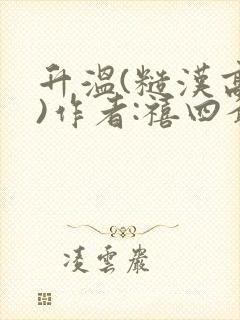 升温(糙汉高
)作者:禧四
凌云岩